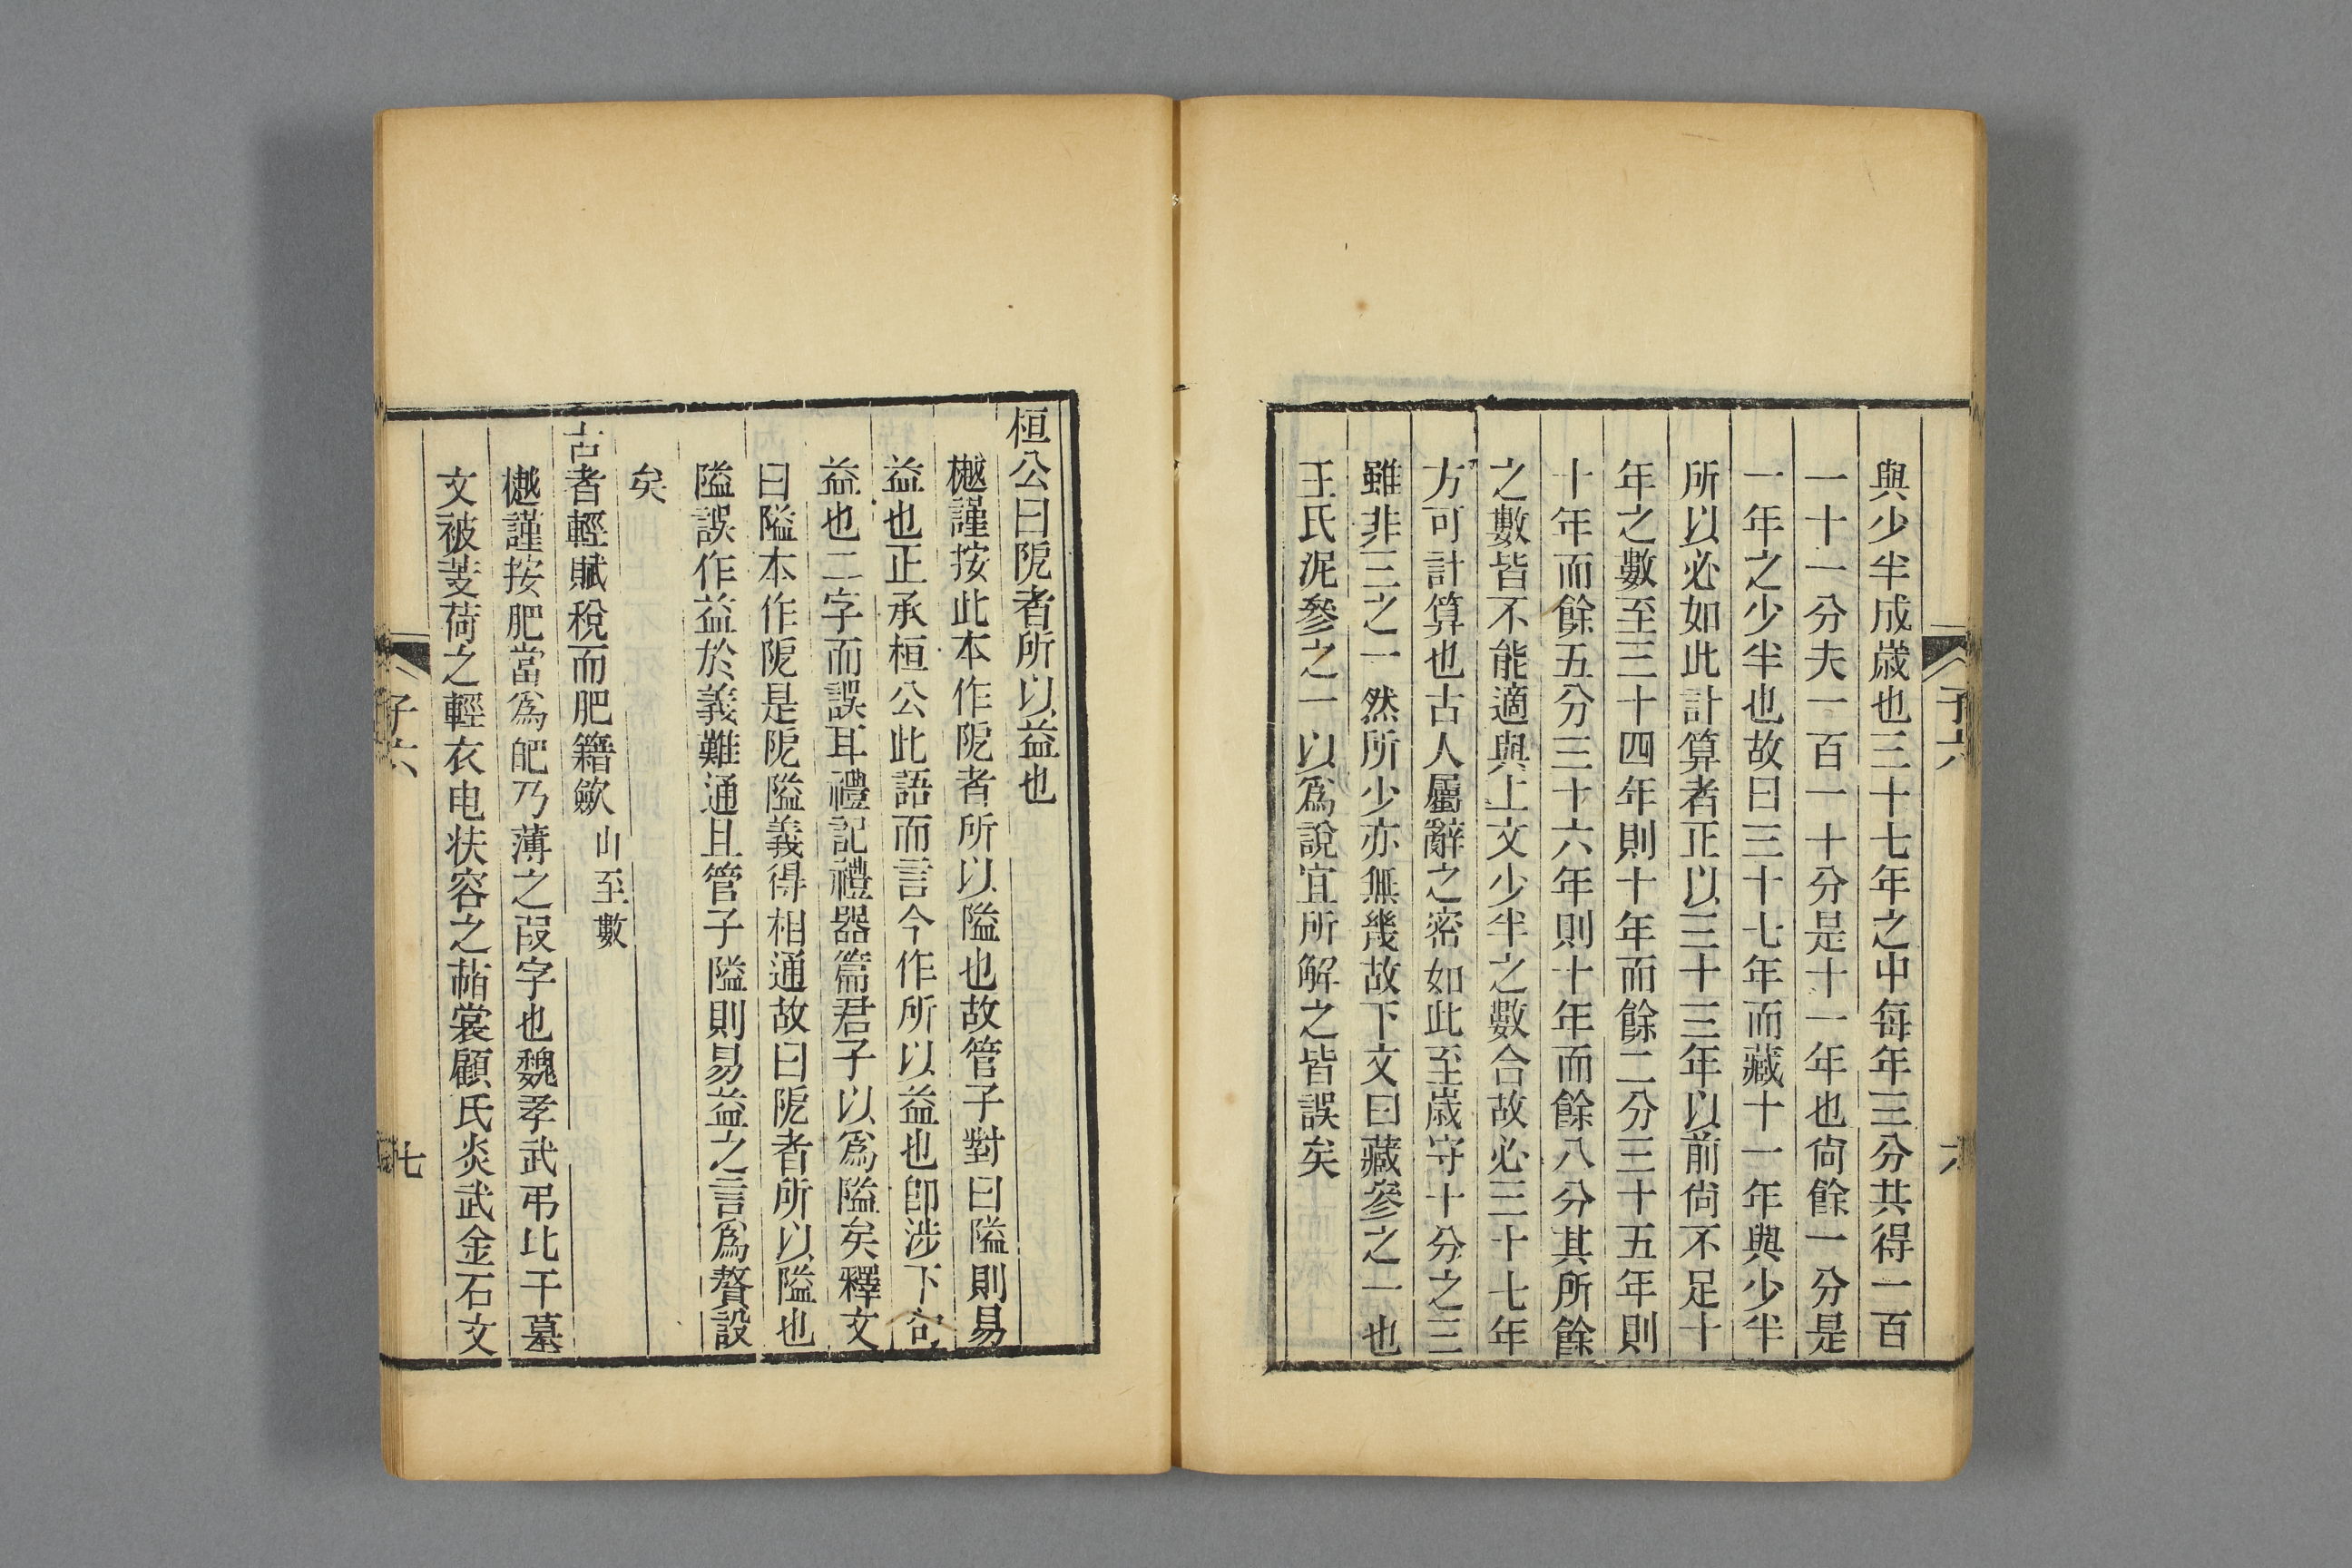 與少半成歲也三十七年之中每年三分共得一百
一十一分夫一百一十分是十一年也尙餘一分是
一年之少半也故曰三十七年而藏十一年與少半
所以必如此計算者正以三十三年以前尙不足十
年之數至三十四年則十年而餘二分三十五年則
十年而餘五分三十六年則十年而餘八分其所餘
之數皆不能適與上文少半之數合故必三十七年
方可計算也古人屬辭之密如此至歲守十分之三
雖非三之一然所少亦無幾故下文曰藏參之一也
王氏泥參之一以爲說宜所解之皆誤矣
子六
六
桓公曰阸者所以益也
樾謹按此本作阸者所以隘也故管子對曰隘則易
益也正承桓公此語而言今作所以益也卽涉下句
益也二字而誤耳禮記禮器篇君子以爲隘矣釋文
曰隘本作阸是阸隘義得相通故曰阸者所以隘也
隘誤作益於義難通且管子隘則易益之言爲贅設
矣
古者輕賦稅而肥籍歛 山至數
樾謹按肥當爲䏢乃薄之叚字也魏孝武弔比干墓
文被芰荷之輕衣电扶容之䓑裳顧氏炎武金石文
子六
七